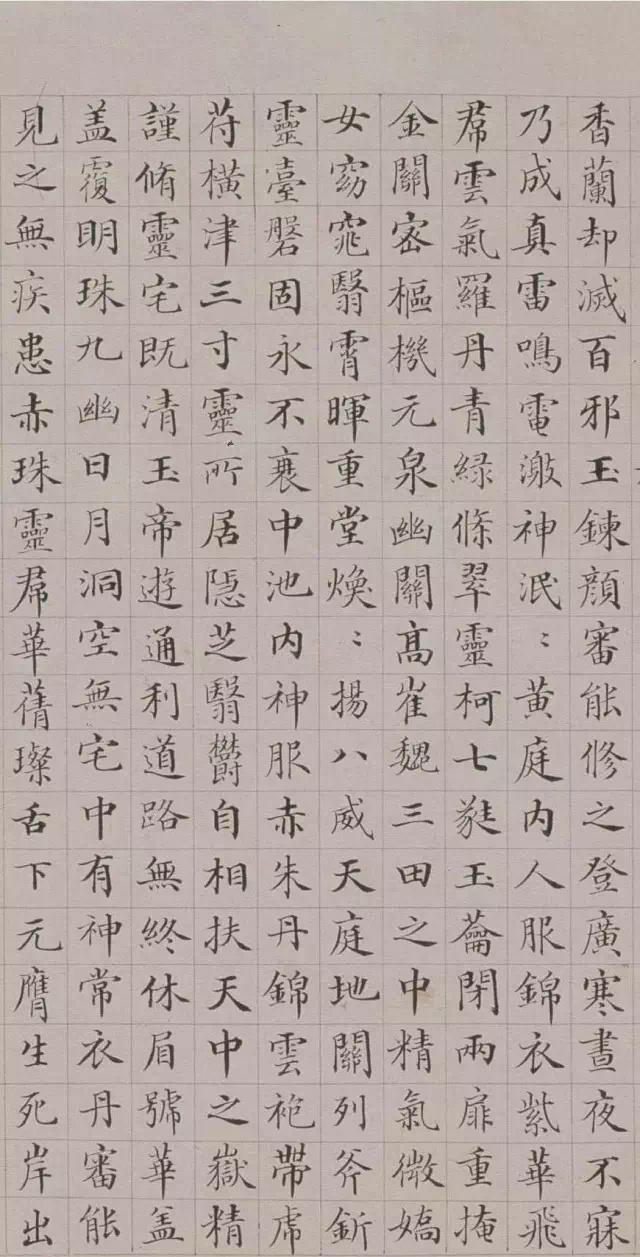 香蘭却滅百邪玉鍊顔審能修之登廣寒晝夜不寐
乃成真雷鳴電激神泯〻黃庭内人服錦衣紫華飛
帬雲氣羅丹青緑條翠靈柯七蕤玉蘥閉兩扉重掩
金關密樞機元泉幽關高崔巍三田之中精氣微嬌
女窈窕翳霄暉重堂煥〻揚八威天庭地關列斧釿
靈臺磐固永不衰中池内神服赤朱丹錦雲袍帶虎
苻橫津三寸靈所居隱芝翳鬱自相扶天中之嶽精
謹脩靈宅既清玉帝遊通利道路無終休眉號華盖
盖覆明珠九幽日月洞空無宅中有神常衣丹審能
見之無疾患赤珠靈帬華蒨璨舌下元膺生死岸出